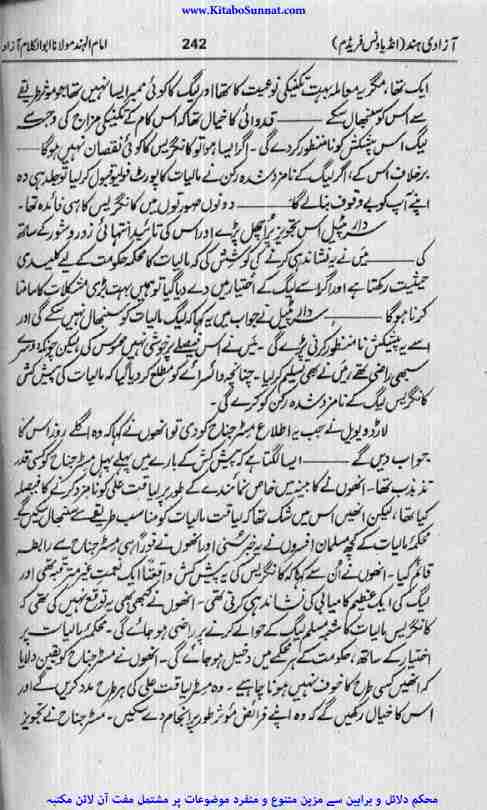 www.KitaboSunnat.com
آزادی ہند (انڈیا ونس فریڈم) 242 امام الہند مولانا ابوالکلام آزاد
ایک تھا، مگر یہ معاملہ بہت تکنیکی نوعیت کا تھا اور لیگ کا کوئی ممبر ایسا نہیں تھا جو مؤثر طریقے
سے اس کو سنبھال سکے ——— قدوائی کا خیال تھا کہ اس کام کے تکنیکی مزاج کی وجہ سے
لیگ اس پیشکش کو نامنظور کر دے گی۔ اگر ایسا ہوا تو کانگریس کا کوئی نقصان نہیں ہوگا —
برخلاف اس کے، اگر لیگ کے نامزد شدہ رکن نے مالیات کا پورٹ فولیو قبول کر لیا تو جلد ہی وہ
اپنے آپ کو بے وقوف بنالے گا ——— دونوں صورتوں میں کانگریس کا ہی فائدہ تھا۔
سردار پٹیل اس تجویز پر اُچھل پڑے اور اس کی تائید انتہائی زور و شور کے ساتھ
کی ——— میں نے یہ نشاندہی کرنے کی کوشش کی کہ مالیات کا محکمہ حکومت کے لیے کلیدی
حیثیت رکھتا ہے اور اگر اسے لیگ کے اختیار میں دے دیا گیا تو ہمیں بہت بڑی مشکلات کا سامنا
کرنا ہوگا ——— سردار پٹیل نے جواب میں یہ کہا کہ لیگ مالیات کو سنبھال نہیں سکے گی اور
اسے یہ پیشکش نامنظور کرنی پڑے گی۔ میں نے اس فیصلے پر خوشی نہیں محسوس کی، لیکن چونکہ دوسرے
سبھی راضی تھے، میں نے بھی تسلیم کر لیا۔ چنانچہ وائسرائے کو مطلع کر دیا گیا کہ مالیات کی پیش کش
کانگریس لیگ کے نامزد شدہ رکن کو کرے گی۔
لارڈ ویول نے جب یہ اطلاع مسٹر جناح کو دی تو انھوں نے کہا کہ وہ اگلے روز اس کا
جواب دیں گے ——— ایسا لگتا ہے کہ پیش کش کے بارے میں پہلے پہل مسٹر جناح کو کسی قدر
تذبذب تھا۔ انھوں نے کابینہ میں خاص نمائندے کے طور پر لیاقت علی کو نامزد کرنے کا فیصلہ
کیا تھا، لیکن انھیں اس میں شک تھا کہ لیاقت مالیات کو مناسب طریقے سے سنبھال سکیں گے۔
محکمۂ مالیات کے کچھ مسلمان افسروں نے یہ خبر سُنی اور انھوں نے فوراً ہی مسٹر جناح سے رابطہ
قائم کیا۔ انھوں نے اُن سے کہا کہ کانگریس کی یہ پیش کش واقعتاً ایک نعمتِ غیر مترقبہ تھی اور
لیگ کی ایک عظیم کامیابی کی نشاندہی کرتی تھی۔ انھوں نے کبھی بھی یہ توقع نہیں کی تھی کہ
کانگریس مالیات کا شعبہ مسلم لیگ کے حوالے کرنے پر راضی ہو جائے گی۔ محکمۂ مالیات پر
اختیار کے ساتھ، حکومت کے ہر محکمے میں دخیل ہو جائے گی۔ انھوں نے مسٹر جناح کو یقین دلایا
کہ انھیں کسی طرح کا خوف نہیں ہونا چاہیے۔ وہ مسٹر لیاقت علی کی ہر طرح مدد کریں گے اور
اس کا خیال رکھیں گے کہ وہ اپنے فرائض مؤثر طور پر انجام دے سکیں۔ مسٹر جناح نے تجویز
محکم دلائل و براہین سے مزین متنوع و منفرد موضوعات پر مشتمل مفت آن لائن مکتبہ